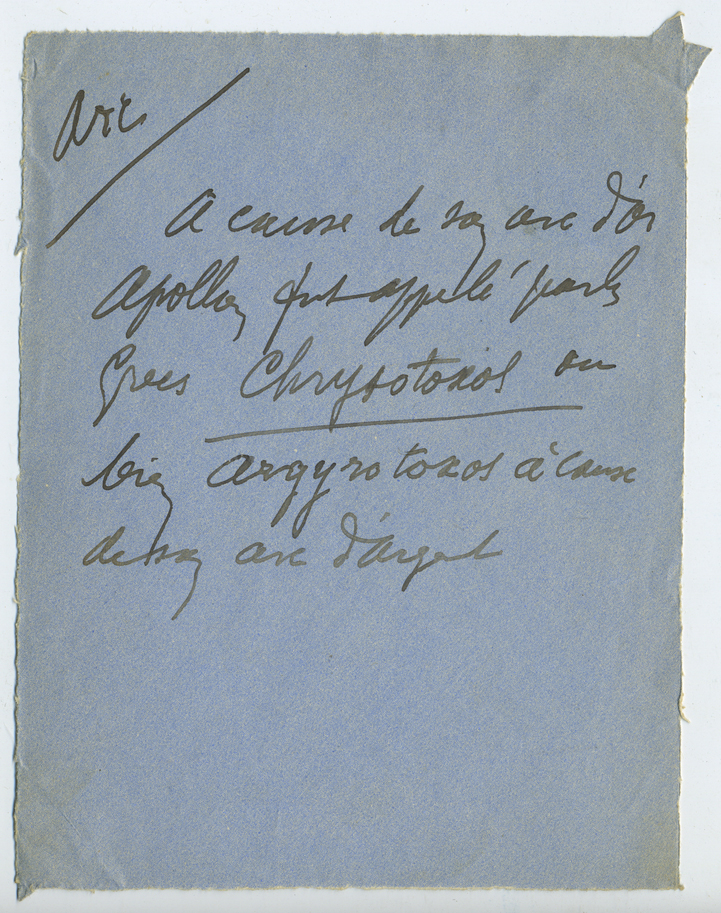 Arc
A cause de son arc d'or
Apollon fut appelé par les
Grecs Chrysotoxos ou
bien Argyrotoxos à cause
de son arc d'argent